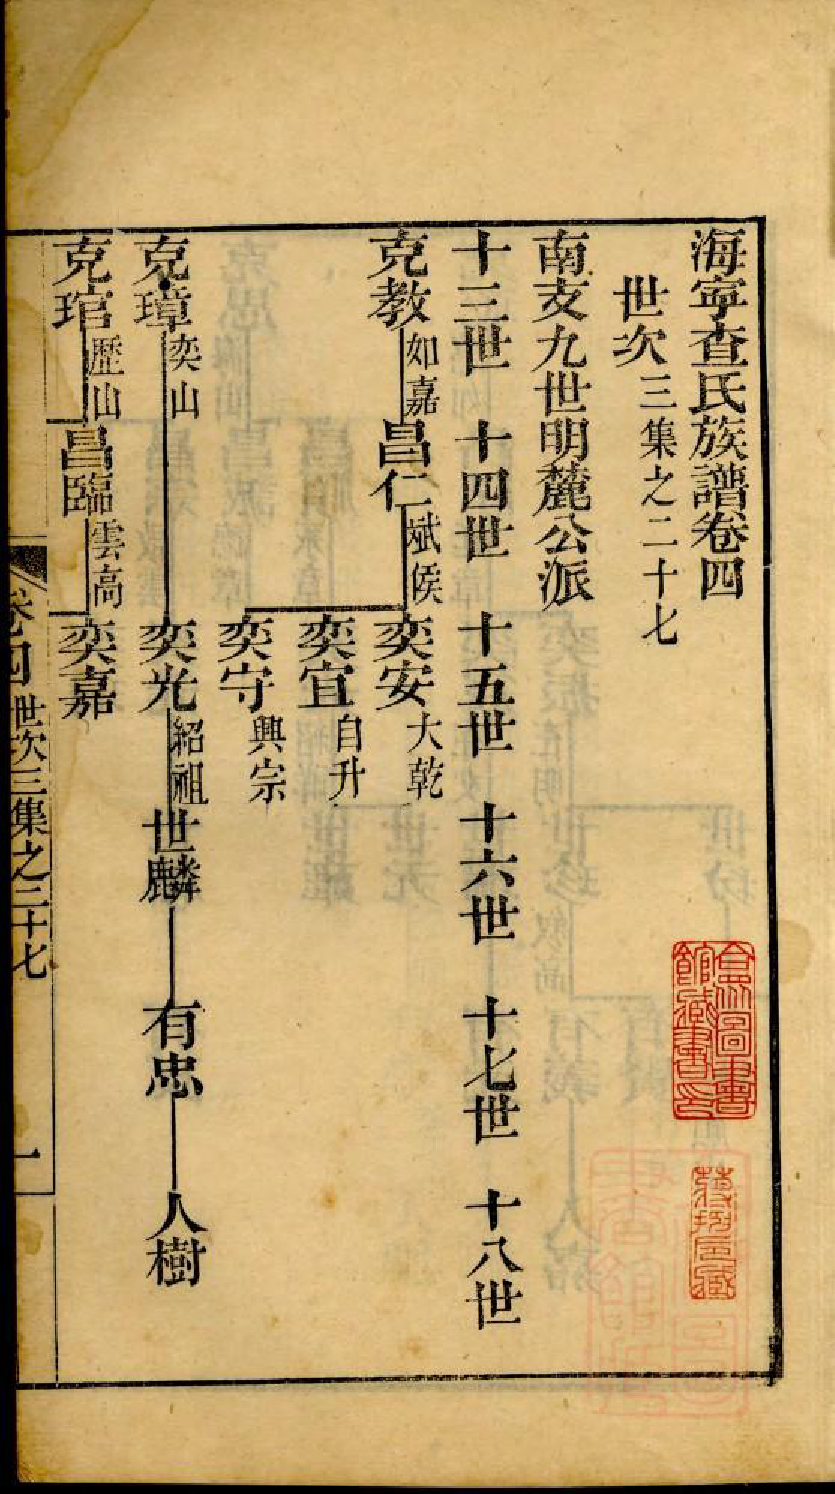 海寧查氏族譜卷四
世次三集之二十七
南支九世明麓公派
十三世 十四世 十五世 十六世 十七世 十八世
克教 如嘉 昌仁 斌侯 奕安 大乾
奕宜 自升
奕守 興宗
克璋 奕山 奕光 紹祖 世麟 有忠 人樹
克琯 歷山 昌臨 雲高 奕嘉
卷四 世次三集之二十七 一